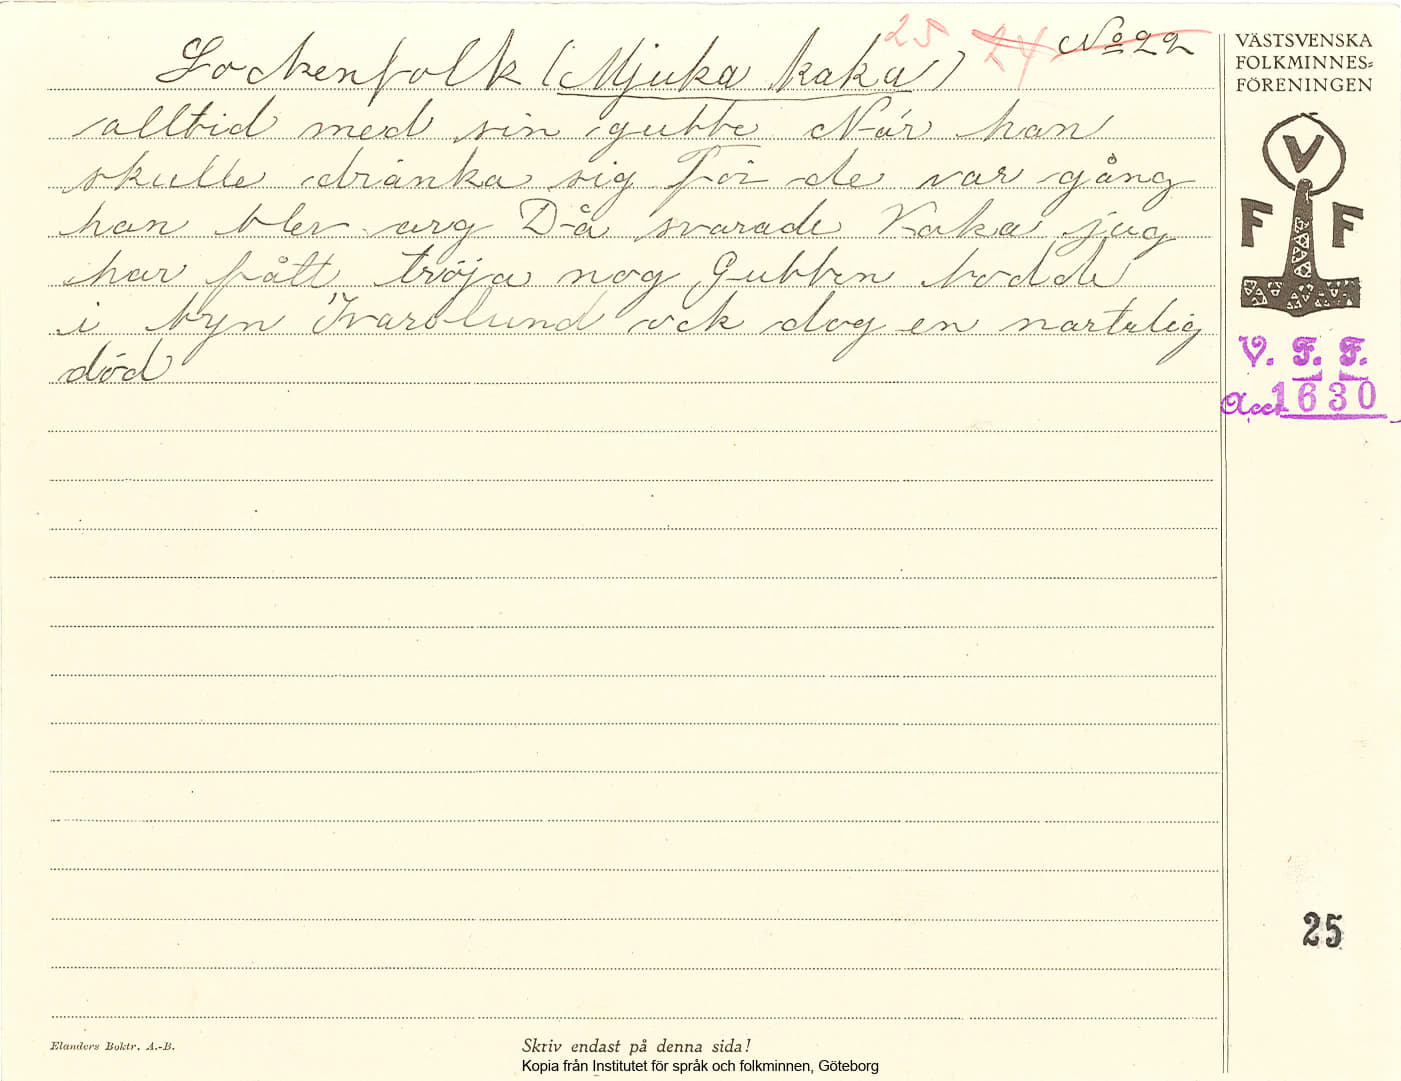 25 24 No 22
Sockenfolk (Mjuka kaka)
alltid med sin gubbe När han
skulle dränka sig För de var gång
han blev arg Då svarade Kaka jag
har fått tröja nog Gubben bodde
i byn Ivarslund ock dog en nartulig
död
VÄSTSVENSKA
FOLKMINNES=
FÖRENINGEN
V
F F
V. F. F.
Acc. 1630
25
Elanders Boktr. A.-B.
Skriv endast på denna sida!
Kopia från Institutet för språk och folkminnen, Göteborg